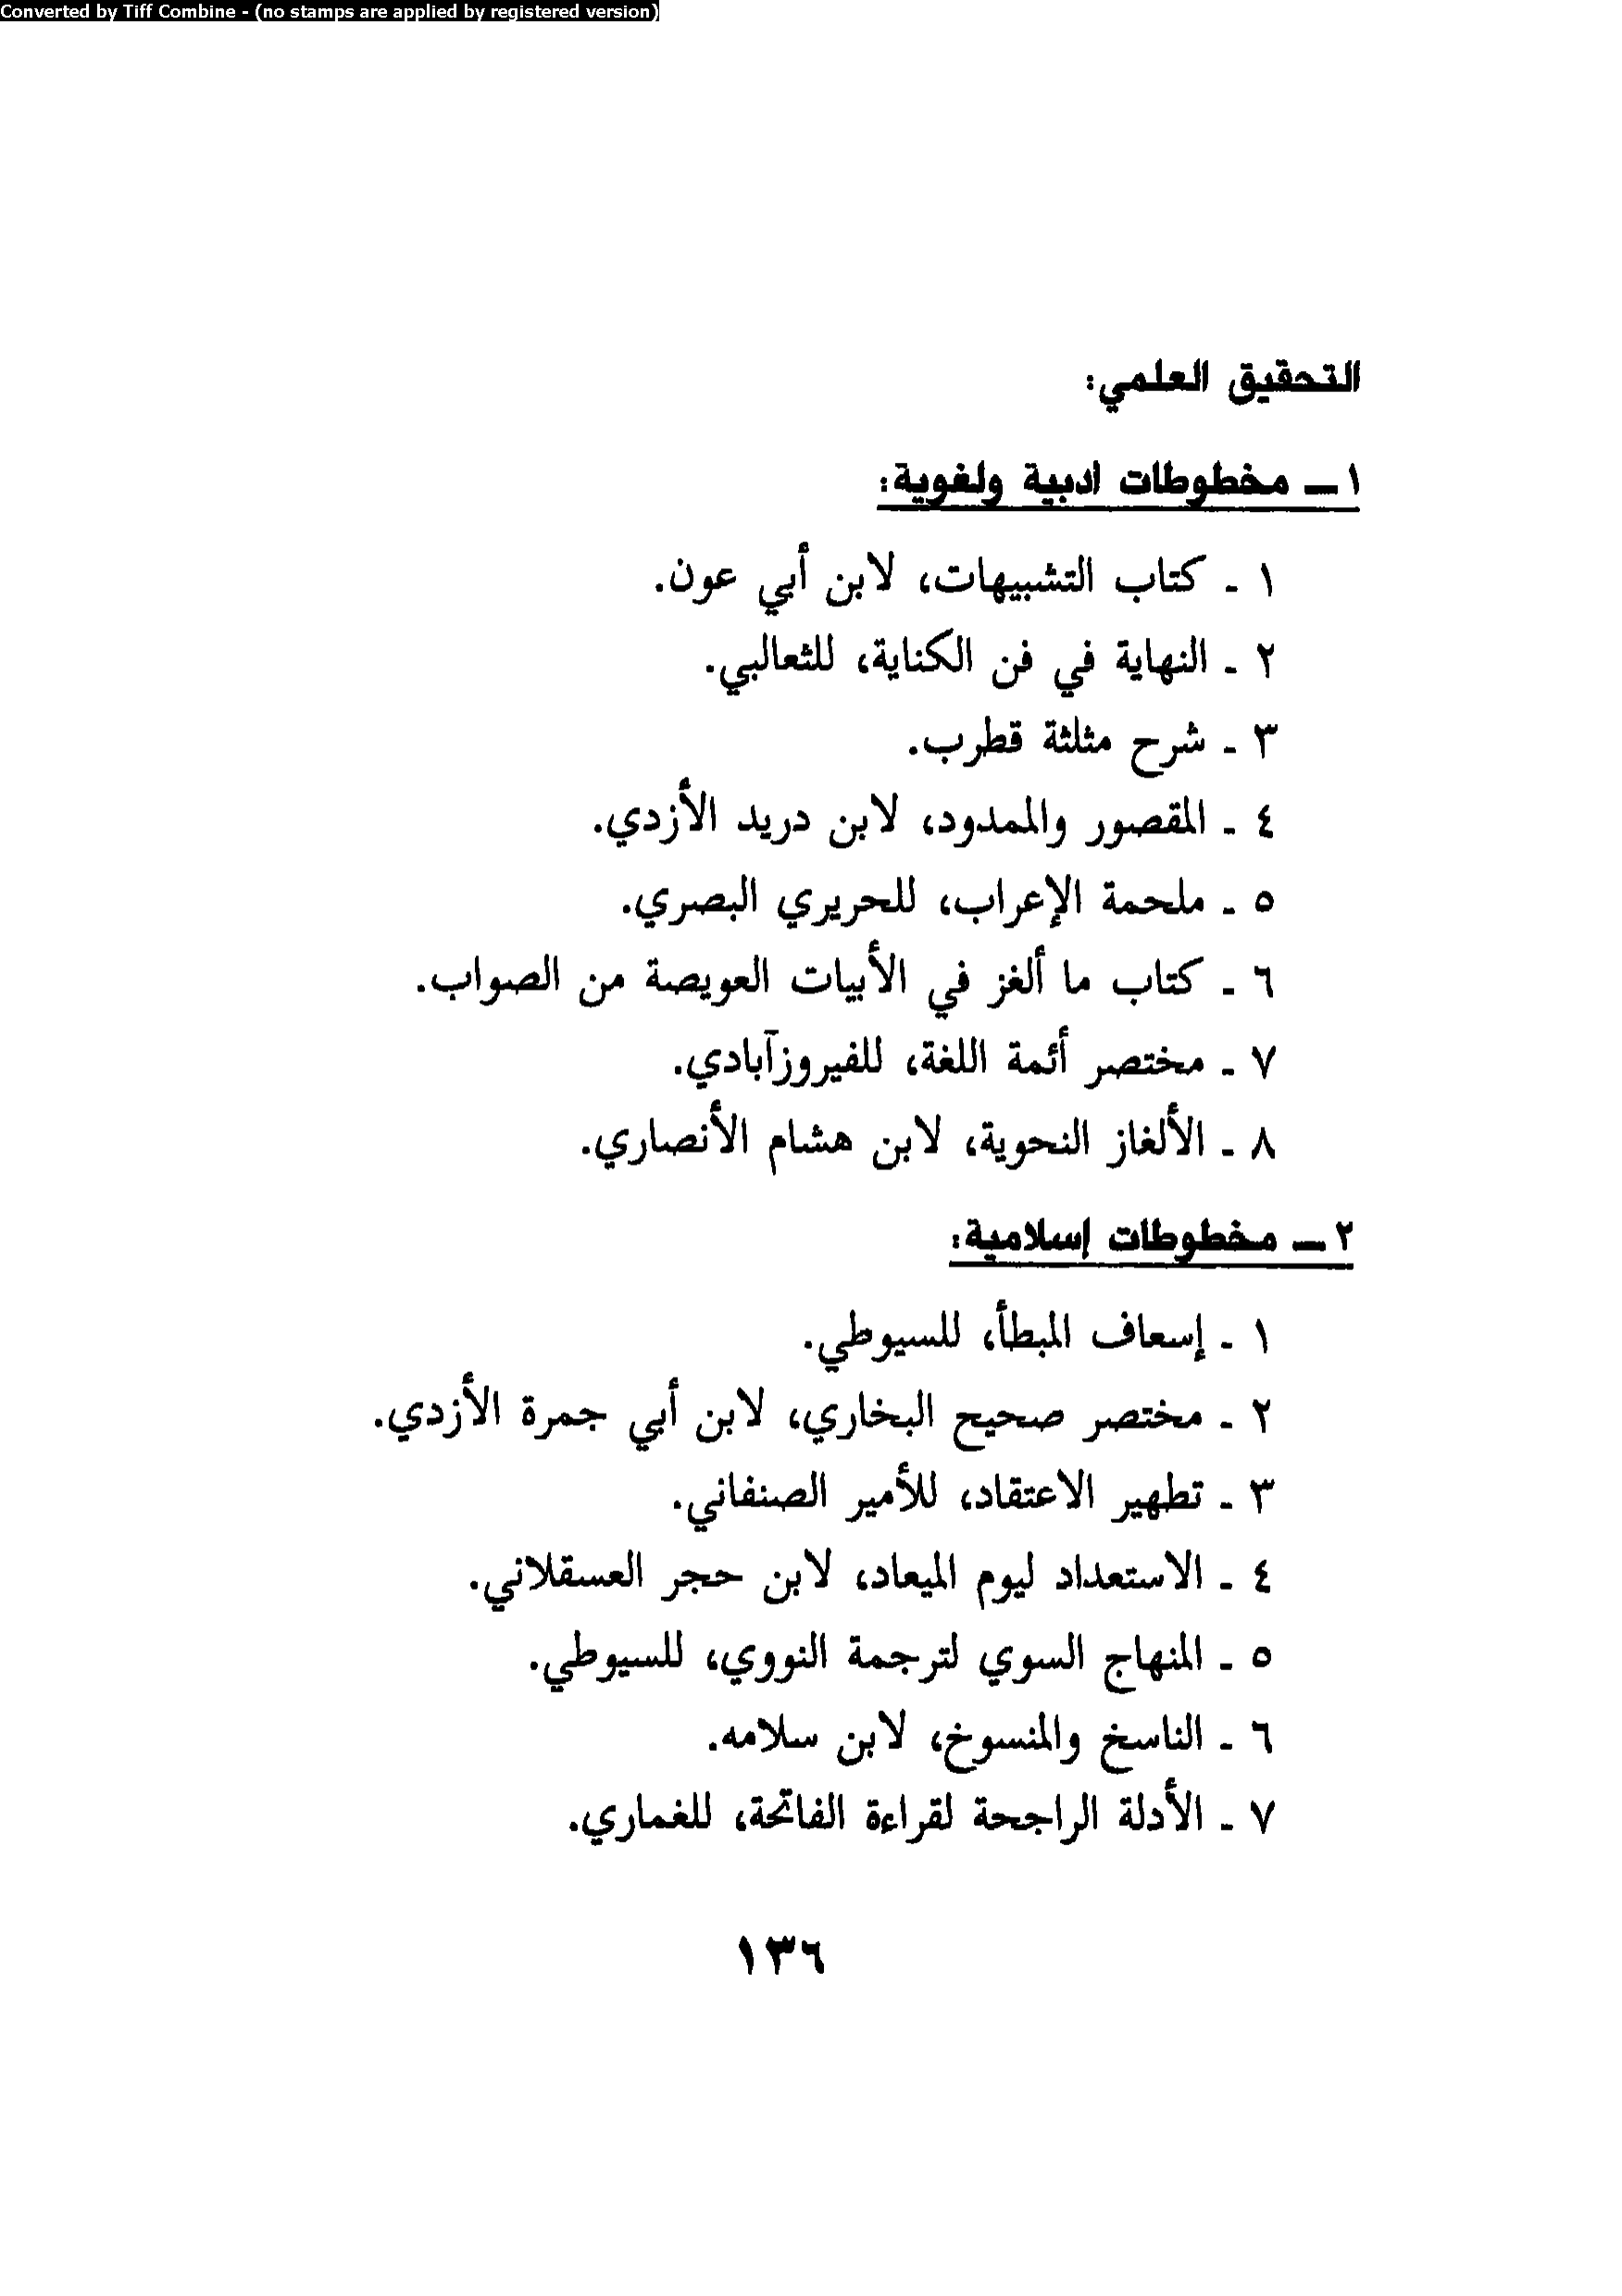 Converted by Tiff Combine - (no stamps are applied by registered version)
التحقيق العلمي:
١ ـ مخطوطات ادبية ولغوية:
١ ـ كتاب التشبيهات، لابن أبي عون.
٢ ـ النهاية في فن الكناية، للثعالبي.
٣ ـ شرح مثلثة قطرب.
٤ ـ المقصور والممدود، لابن دريد الأزدي.
٥ ـ ملحمة الإعراب، للحريري البصري.
٦ ـ كتاب ما ألغز في الأبيات العويصة من الصواب.
٧ ـ مختصر أئمة اللغة، للفيروزآبادي.
٨ ـ الألغاز النحوية، لابن هشام الأنصاري.
٢ ـ مخطوطات إسلامية:
١ ـ إسعاف المبطأ، للسيوطي.
٢ ـ مختصر صحيح البخاري، لابن أبي جمرة الأزدي.
٣ ـ تطهير الاعتقاد، للأمير الصنفاني.
٤ ـ الاستعداد ليوم الميعاد، لابن حجر العسقلاني.
٥ ـ المنهاج السوي لترجمة النووي، للسيوطي.
٦ ـ الناسخ والمنسوخ، لابن سلامه.
٧ ـ الأدلة الراجحة لقراءة الفاتحة، للغماري.
١٣٦